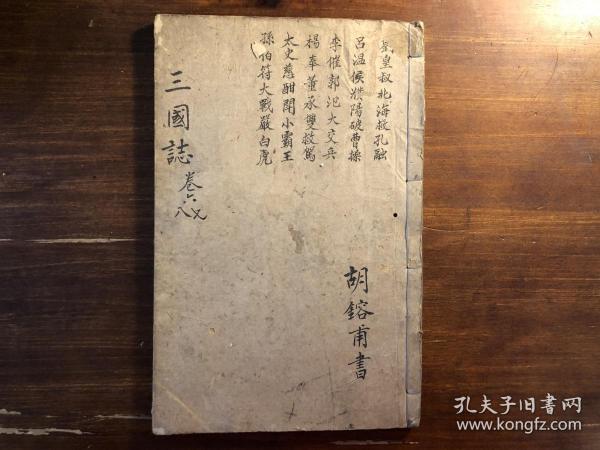 皇叔北海救孔融
呂温侯濮陽破曹操
李催郭汜大交兵
楊奉董承雙救駕
太史慈酣閗小霸王
孫伯符大戰嚴白虎
三國誌
卷六
八
胡鎔甫書
孔夫子旧書网
www.kongfz.com